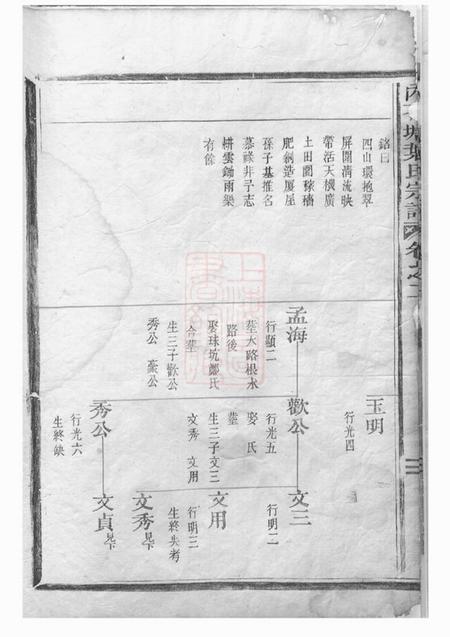 銘曰
四山環抱翠
屏開清流映
帶活天機廣
土田闢稼穡
肥創造厦屋
孫子基推名
慕祿非予志
耕雲鋤雨樂
有餘
玉明
行光四
孟海
行顯二
塟大路根水
路後
娶球坑鄭氏
合塟
生三子歡公
秀公 豪公
歡公
行光五
娶 氏
塟
生三子文三
文秀 文用
文三
行明二
文用
行明三
生終失考
文秀見下
秀公
行光六
生終缺
文貞見下
氏宗譜 卷之二
三